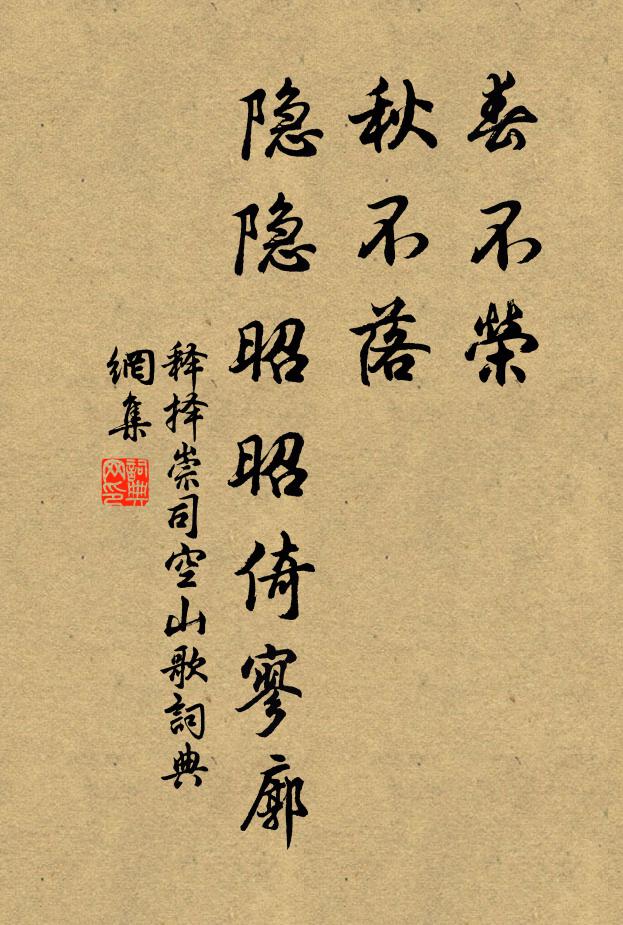 春不榮
秋不落
隐隐昭昭倚寥廓
释择崇司空山歌詞典
網集
詞典网印